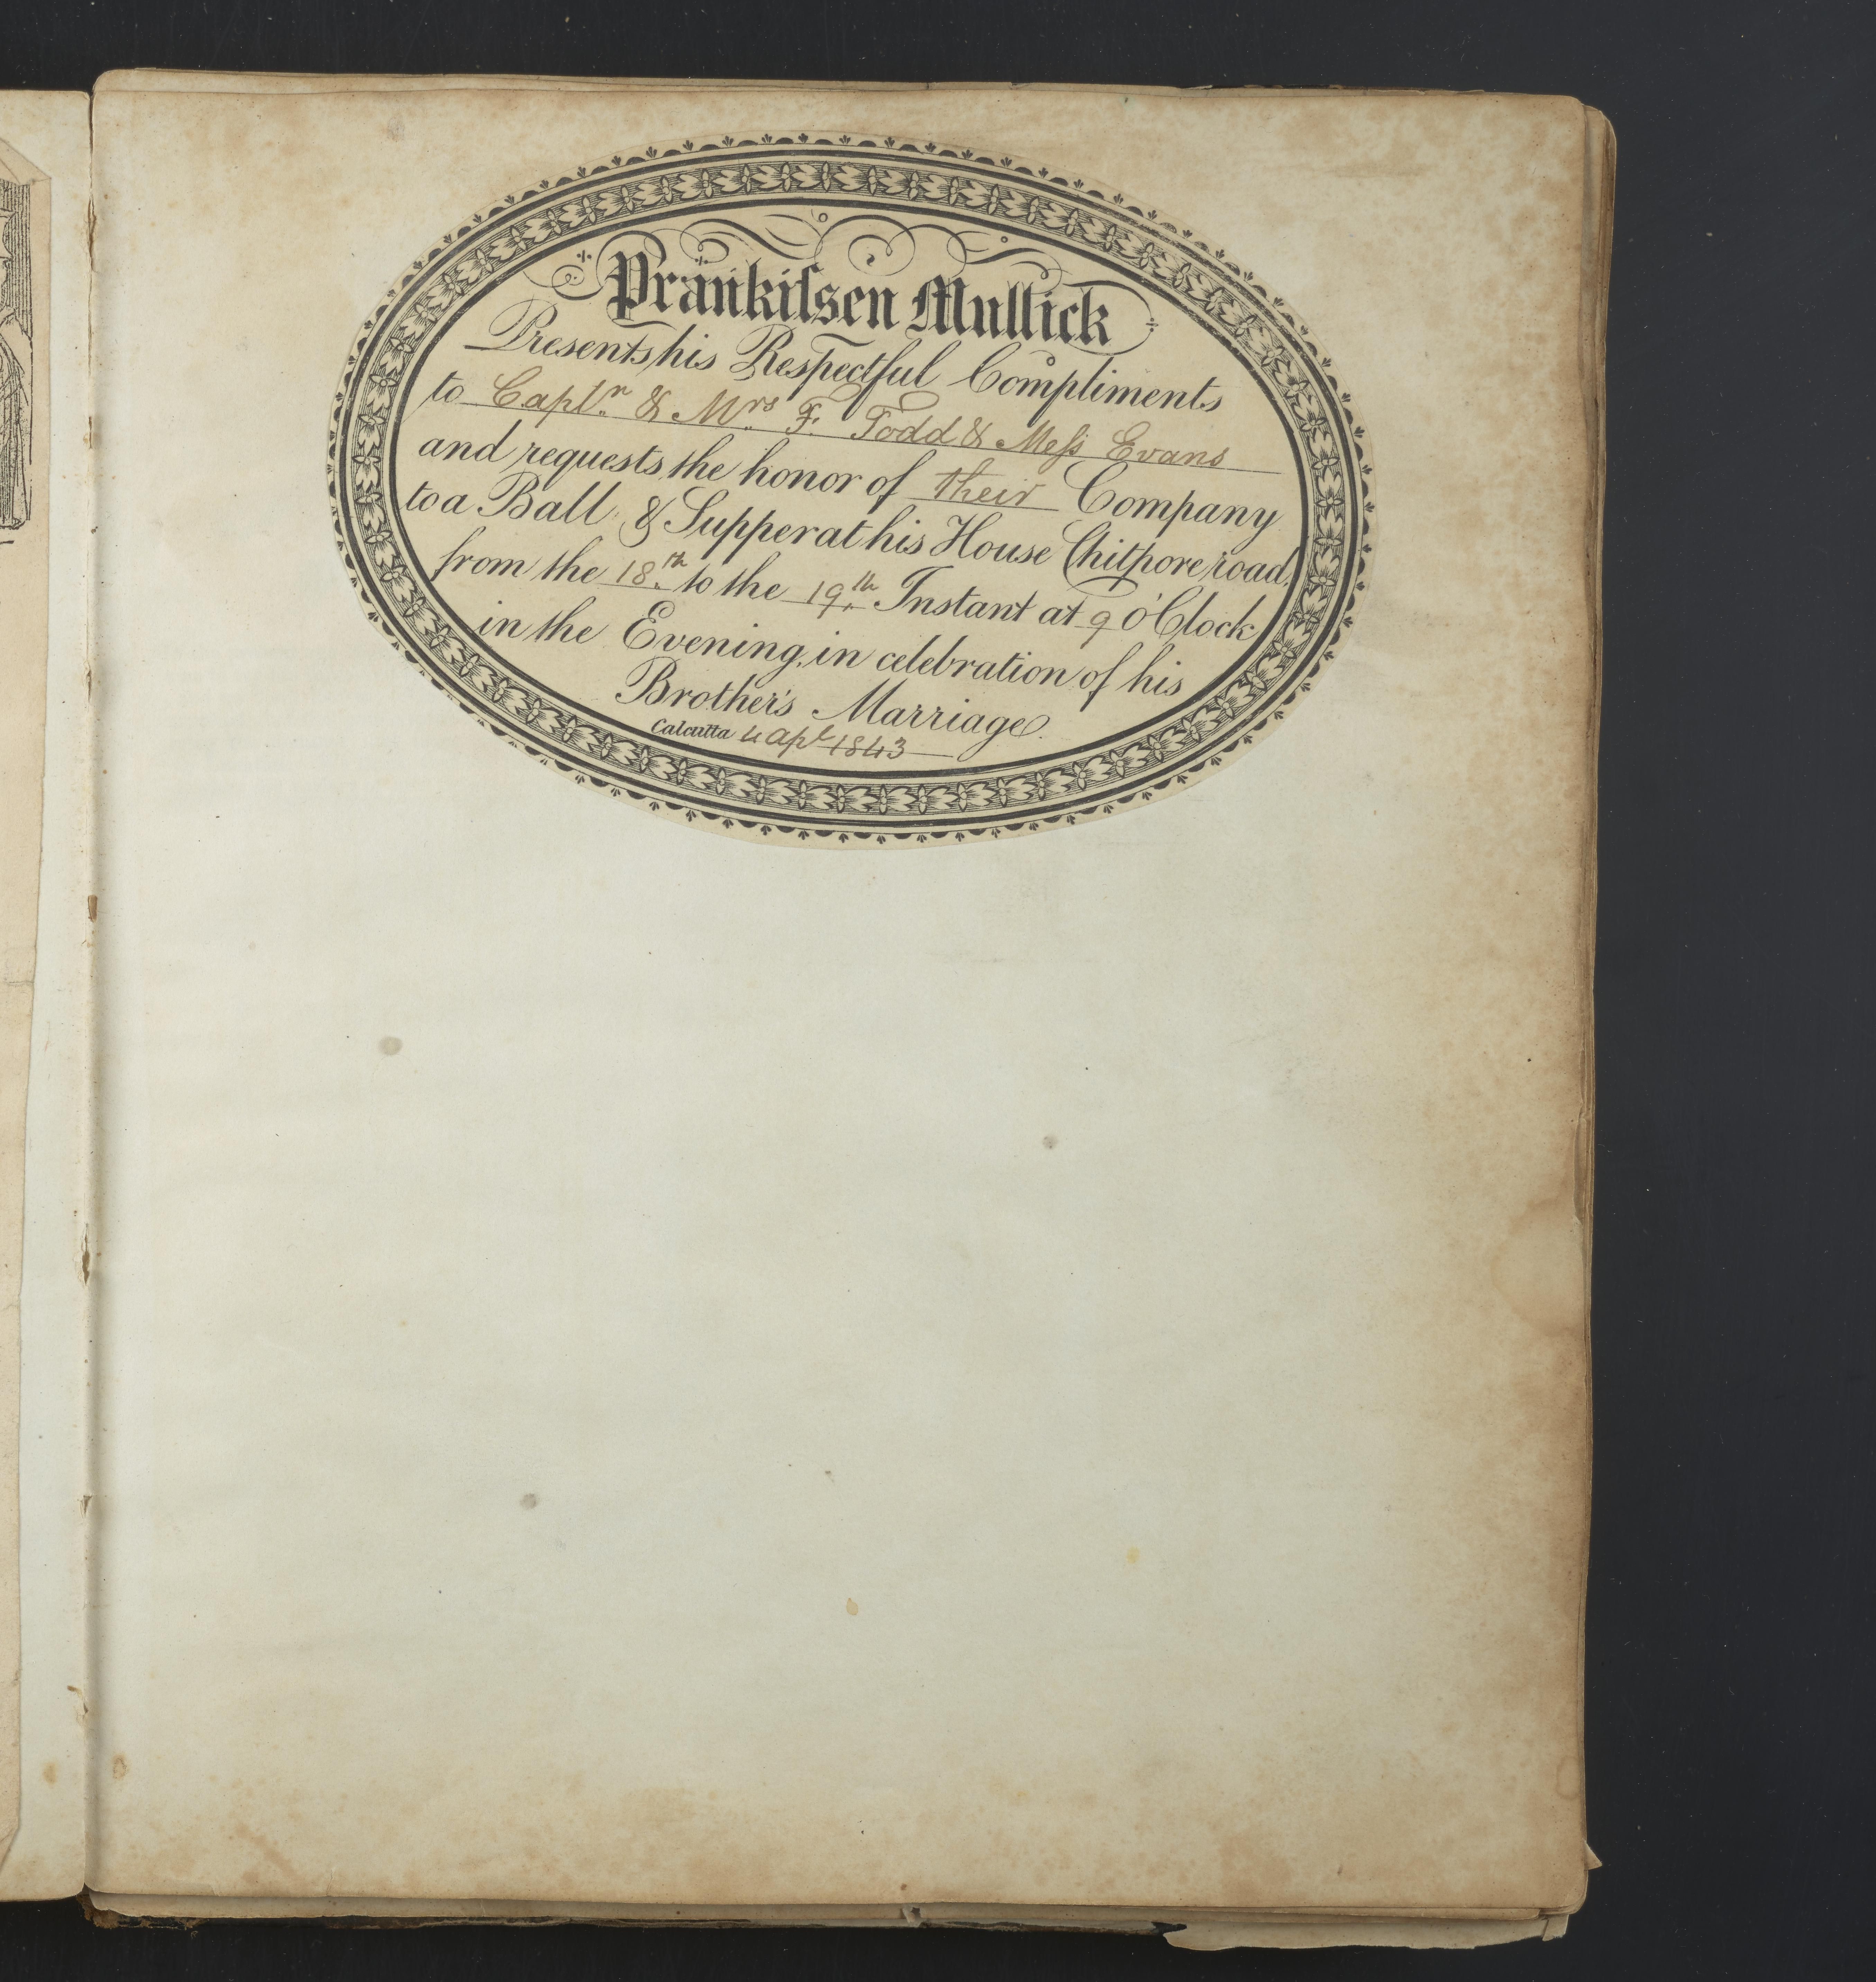 Prankiſsen Mullick
Presents his Respectful Compliments
to Capt.n & Mrs F. Todd & Meſs Evans
and requests the honor of their Company
to a Ball & Supper at his House Chitpore road,
from the 18th to the 19th Instant at 9 o'Clock
in the Evening, in celebration of his
Brother's Marriage.
Calcutta 4 Apl 1843